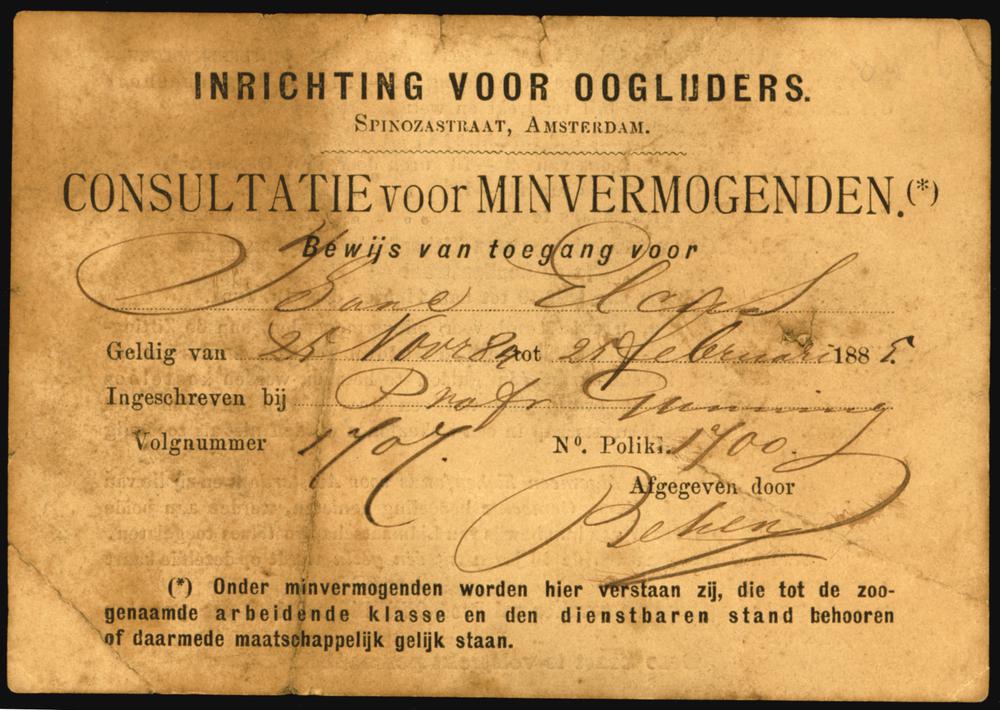 INRICHTING VOOR OOGLIJDERS.
SPINOZASTRAAT, AMSTERDAM.
CONSULTATIE voor MINVERMOGENDEN.(*)
Bewijs van toegang voor
Geldig van 25 Novr 84 tot 25 februari 1885.
Ingeschreven bij Profr Gunning
Volgnummer 1707. No. Polikl. 1700.
Afgegeven door
(*) Onder minvermogenden worden hier verstaan zij, die tot de zoo-
genaamde arbeidende klasse en den dienstbaren stand behooren
of daarmede maatschappelijk gelijk staan.